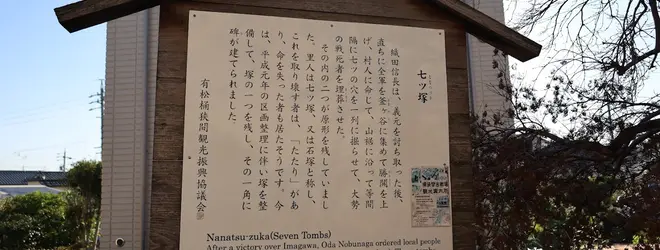 七ツ塚
織田信長は、義元を討ち取った後、
直ちに全軍を釜ケ谷に集めて勝鬨を上
げ、村人に命じて、山裾に沿って等間
隔に七ツの穴を一列に掘らせて、大勢
の戦死者を埋葬させた。
その内の二つが原形を残していまし
た。里人は七ツ塚、又は石塚と称し、
これを取り壊す者は、「たたり」があ
り、命を失った者も居たそうです。今
は、平成元年の区画整理に伴い塚を整
備して、塚の一つを残し、その一角に
碑が建てられました。
有松桶狭間観光振興協議会
Nanatsu-zuka(Seven Tombs)
After a victory over Imagawa, Oda Nobunaga ordered local people